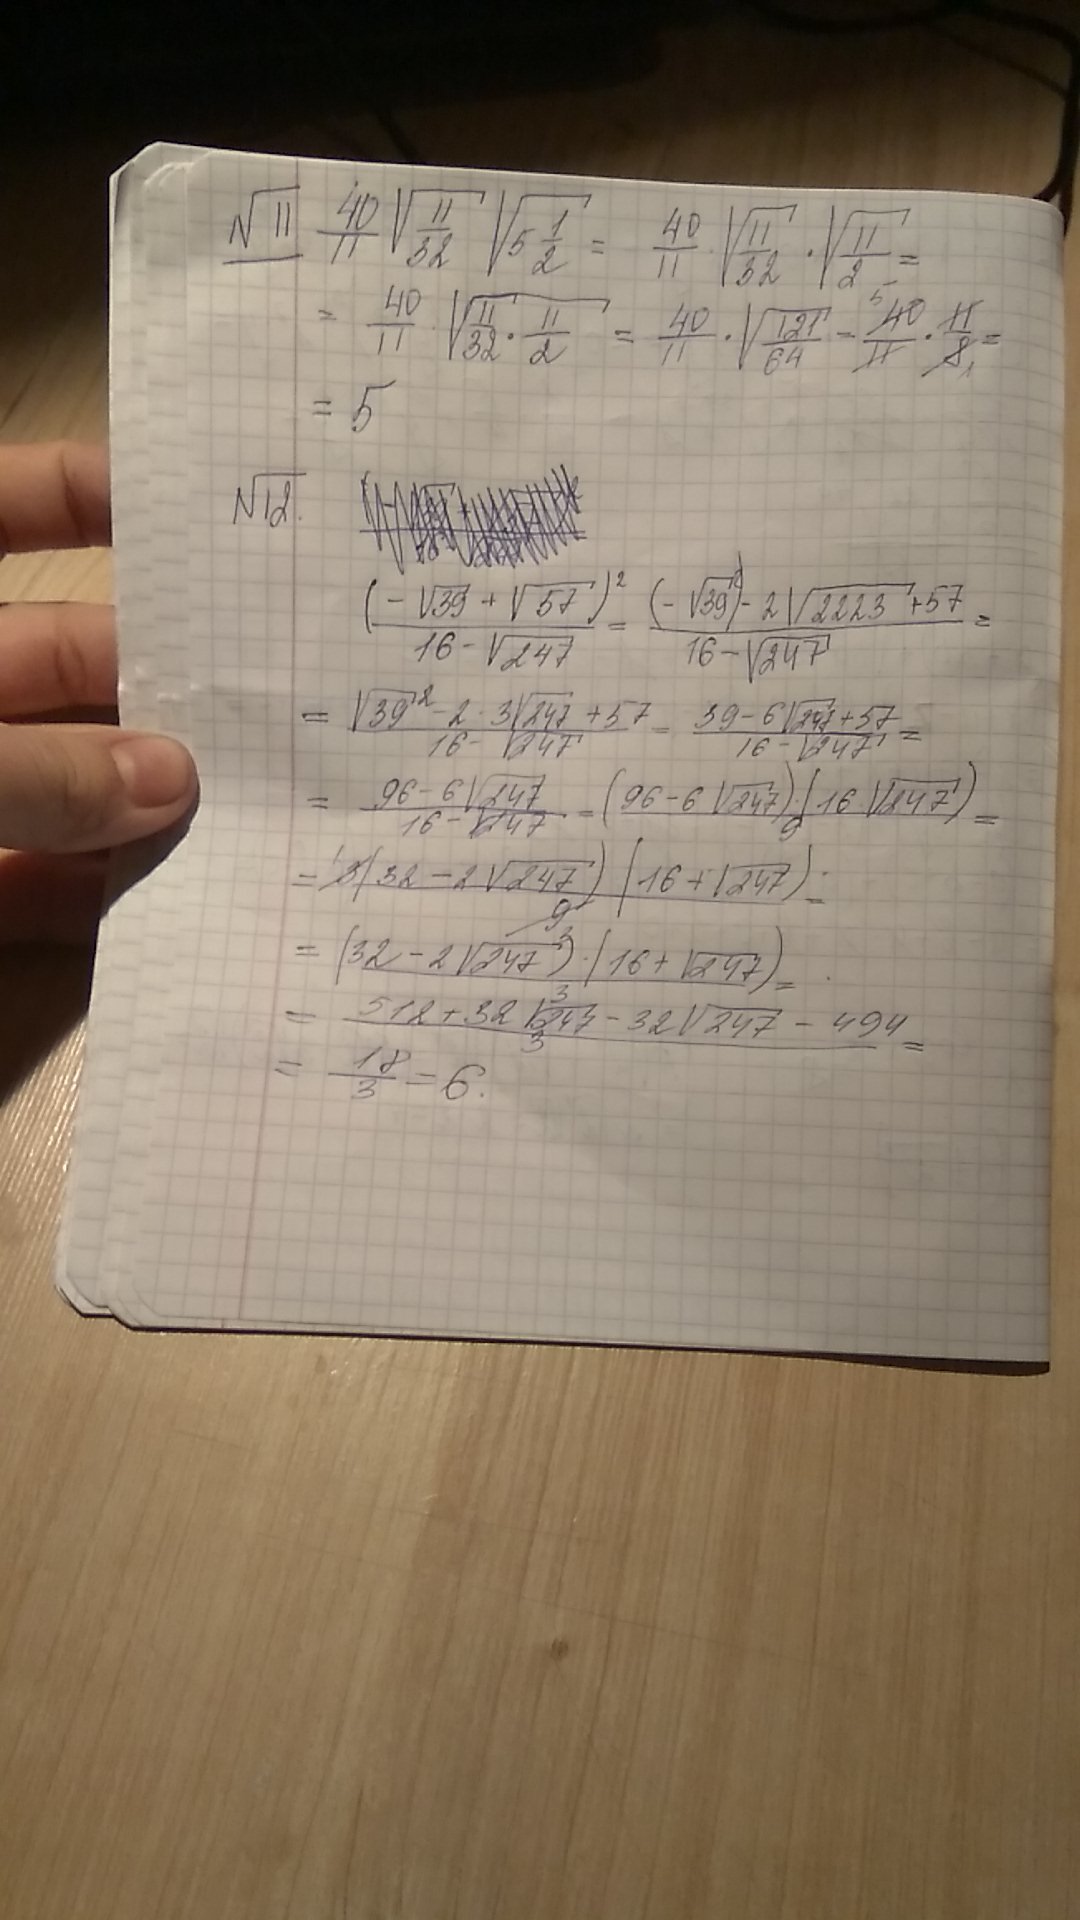 √11 40/11 √(11/32) √(5 1/2) = 40/11 · √(11/32) · √(11/2) =
= 40/11 · √(11/32 · 11/2) = 40/11 · √(121/64) = 40/11 · 11/8 =
= 5
√12.
(-√39 + √57)²/(16 - √247) = ((-√39)² - 2√2223 + 57)/(16 - √247) =
= (√39² - 2 · 3√247 + 57)/(16 - √247) = (39 - 6√247 + 57)/(16 - √247) =
= (96 - 6√247)/(16 - √247) = (96 - 6√247) · (16 · √247)/9 =
= 3(32 - 2√247)(16 + √247)/9 =
= (32 - 2√247) · (16 + √247)/3 =
= (512 + 32√247 - 32√247 - 494)/3 =
= 18/3 = 6.